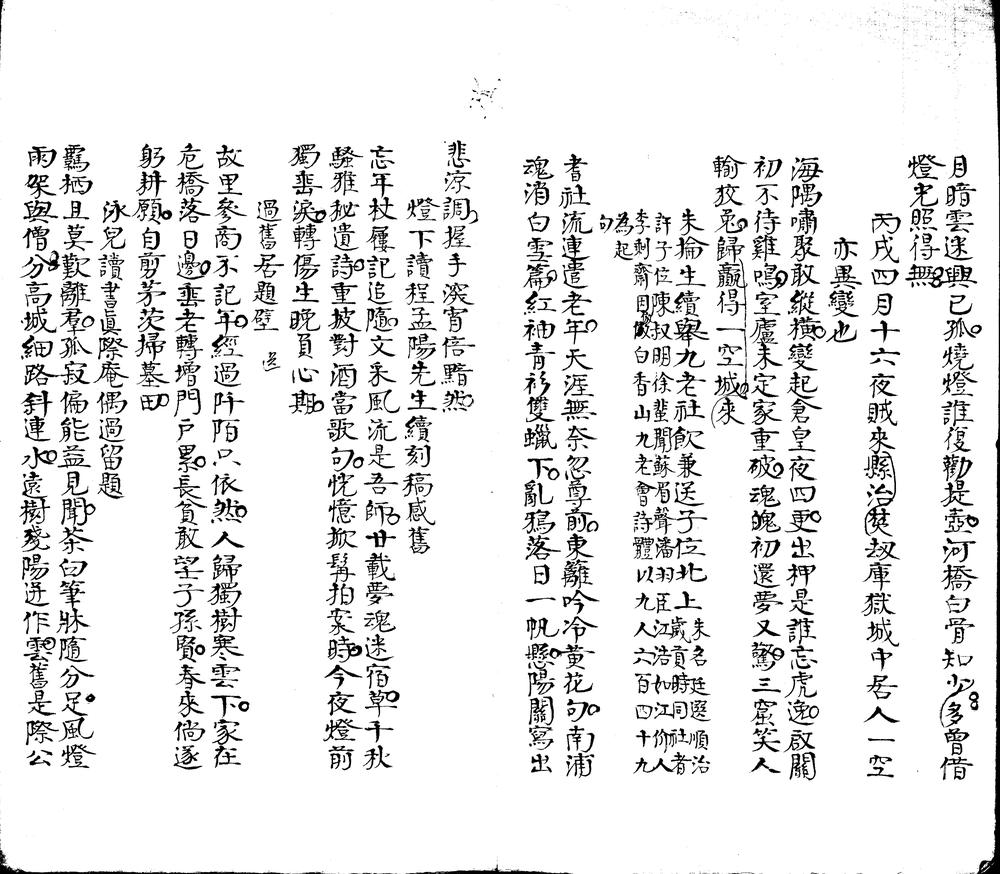 月暗雲迷興已孤燒燈誰復勸提壺河橋白骨知少多曾借
燈光照得無
丙戌四月十六夜賊來縣治焚刼庫獄城中居人一空
亦異變也
海隅嘯聚敢縱橫變起倉皇夜四更出押是誰忘虎逸啟關
初不待雞鳴室廬未定家重破魂魄初還夢又驚三窟笑人
輸狡兔歸贏得一空城來
朱掄生續舉九老社飲兼送子位北上朱名廷選順治
歲貢時同社者
許子位陳叔明徐蜚聞蘇眉聲潘羽臣江浩如江价人
李剩齋用白香山九老會詩體以九人六百四十九
為起
句
耆社流連遣老年天涯無奈忽尊前東籬吟冷黃花句南浦
魂消白雪篇紅袖青衫雙蠟下亂鴉落日一帆懸陽關寫出
悲涼調握手深宵倍黯然
燈下讀程孟陽先生續刻稿感舊
忘年杖屨記追隨文采風流是吾師廿載夢魂迷宿草千秋
騷雅秘遺詩重披對酒當歌句恍憶掀髯拍案時今夜燈前
獨垂淚轉傷生晚負心期
過舊居題壁
故里參商不記年經過阡陌只依然人歸獨樹寒雲下家在
危橋落日邊垂老轉增門戶累長貧敢望子孫賢春來倘遂
躬耕願自剪茅茨掃墓田
泳兒讀書真際庵偶過留題
羈栖且莫歎離羣孤寂偏能益見聞茶臼筆牀隨分足風燈
雨架與僧分高城細路斜連水遠樹殘陽迸作雲舊是際公